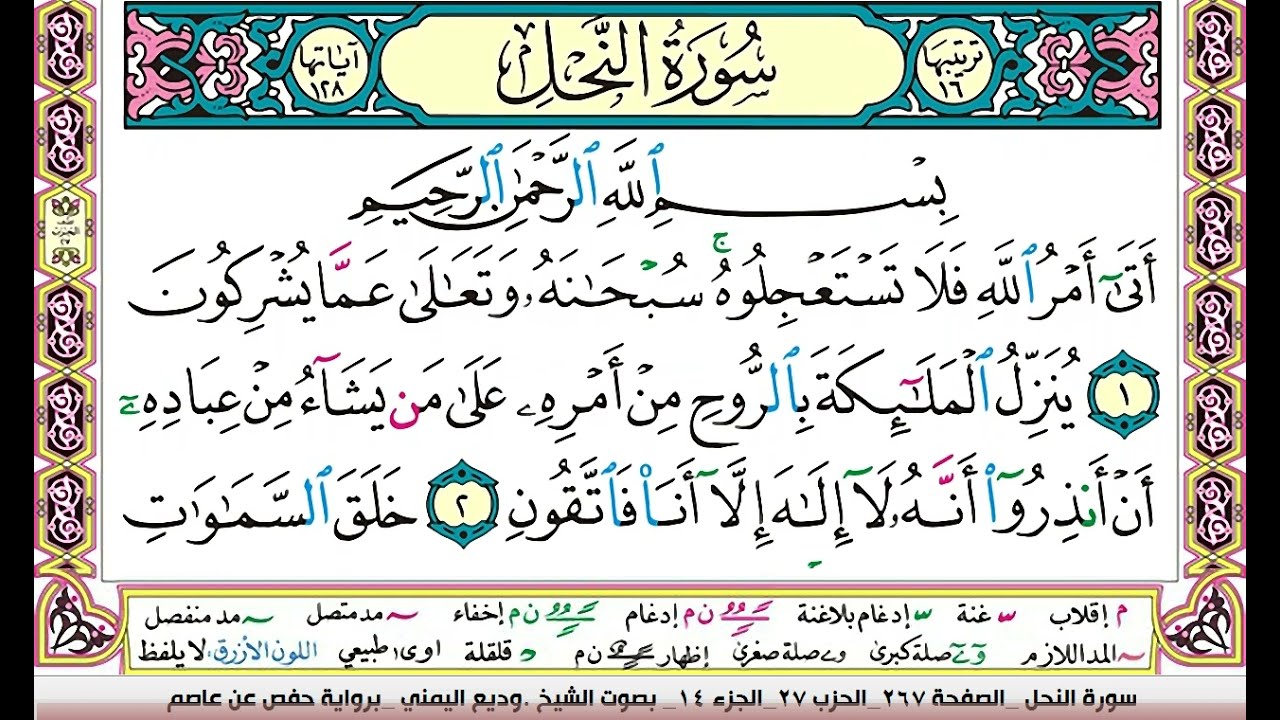 ترتيبها ١٦
سُورَةُ النَّحْلِ
آياتها ١٢٨
بِسْمِ ٱللَّهِ ٱلرَّحْمَٰنِ ٱلرَّحِيمِ
أَتَىٰٓ أَمْرُ ٱللَّهِ فَلَا تَسْتَعْجِلُوهُ ۚ سُبْحَٰنَهُۥ وَتَعَٰلَىٰ عَمَّا يُشْرِكُونَ
١ يُنَزِّلُ ٱلْمَلَٰٓئِكَةَ بِٱلرُّوحِ مِنْ أَمْرِهِۦ عَلَىٰ مَن يَشَآءُ مِنْ عِبَادِهِۦٓ
أَنْ أَنذِرُوٓا۟ أَنَّهُۥ لَآ إِلَٰهَ إِلَّآ أَنَا۠ فَٱتَّقُونِ ٢ خَلَقَ ٱلسَّمَٰوَٰتِ
م إقلاب ـ غنة ـ إدغام بلاغنة ن م إدغام ن م إخفاء ـ مد متصل ـ مد منفصل
ـ المد اللازم و ے صلة كبرى و ے صلة صغرى إظهار ن م د قلقلة ا و ى طبيعي اللون الأزرق: لا يلفظ
سورة النحل _الصفحة ٢٦٧_الحزب ٢٧_الجزء ١٤_ بصوت الشيخ .وديع اليمني _برواية حفص عن عاصم